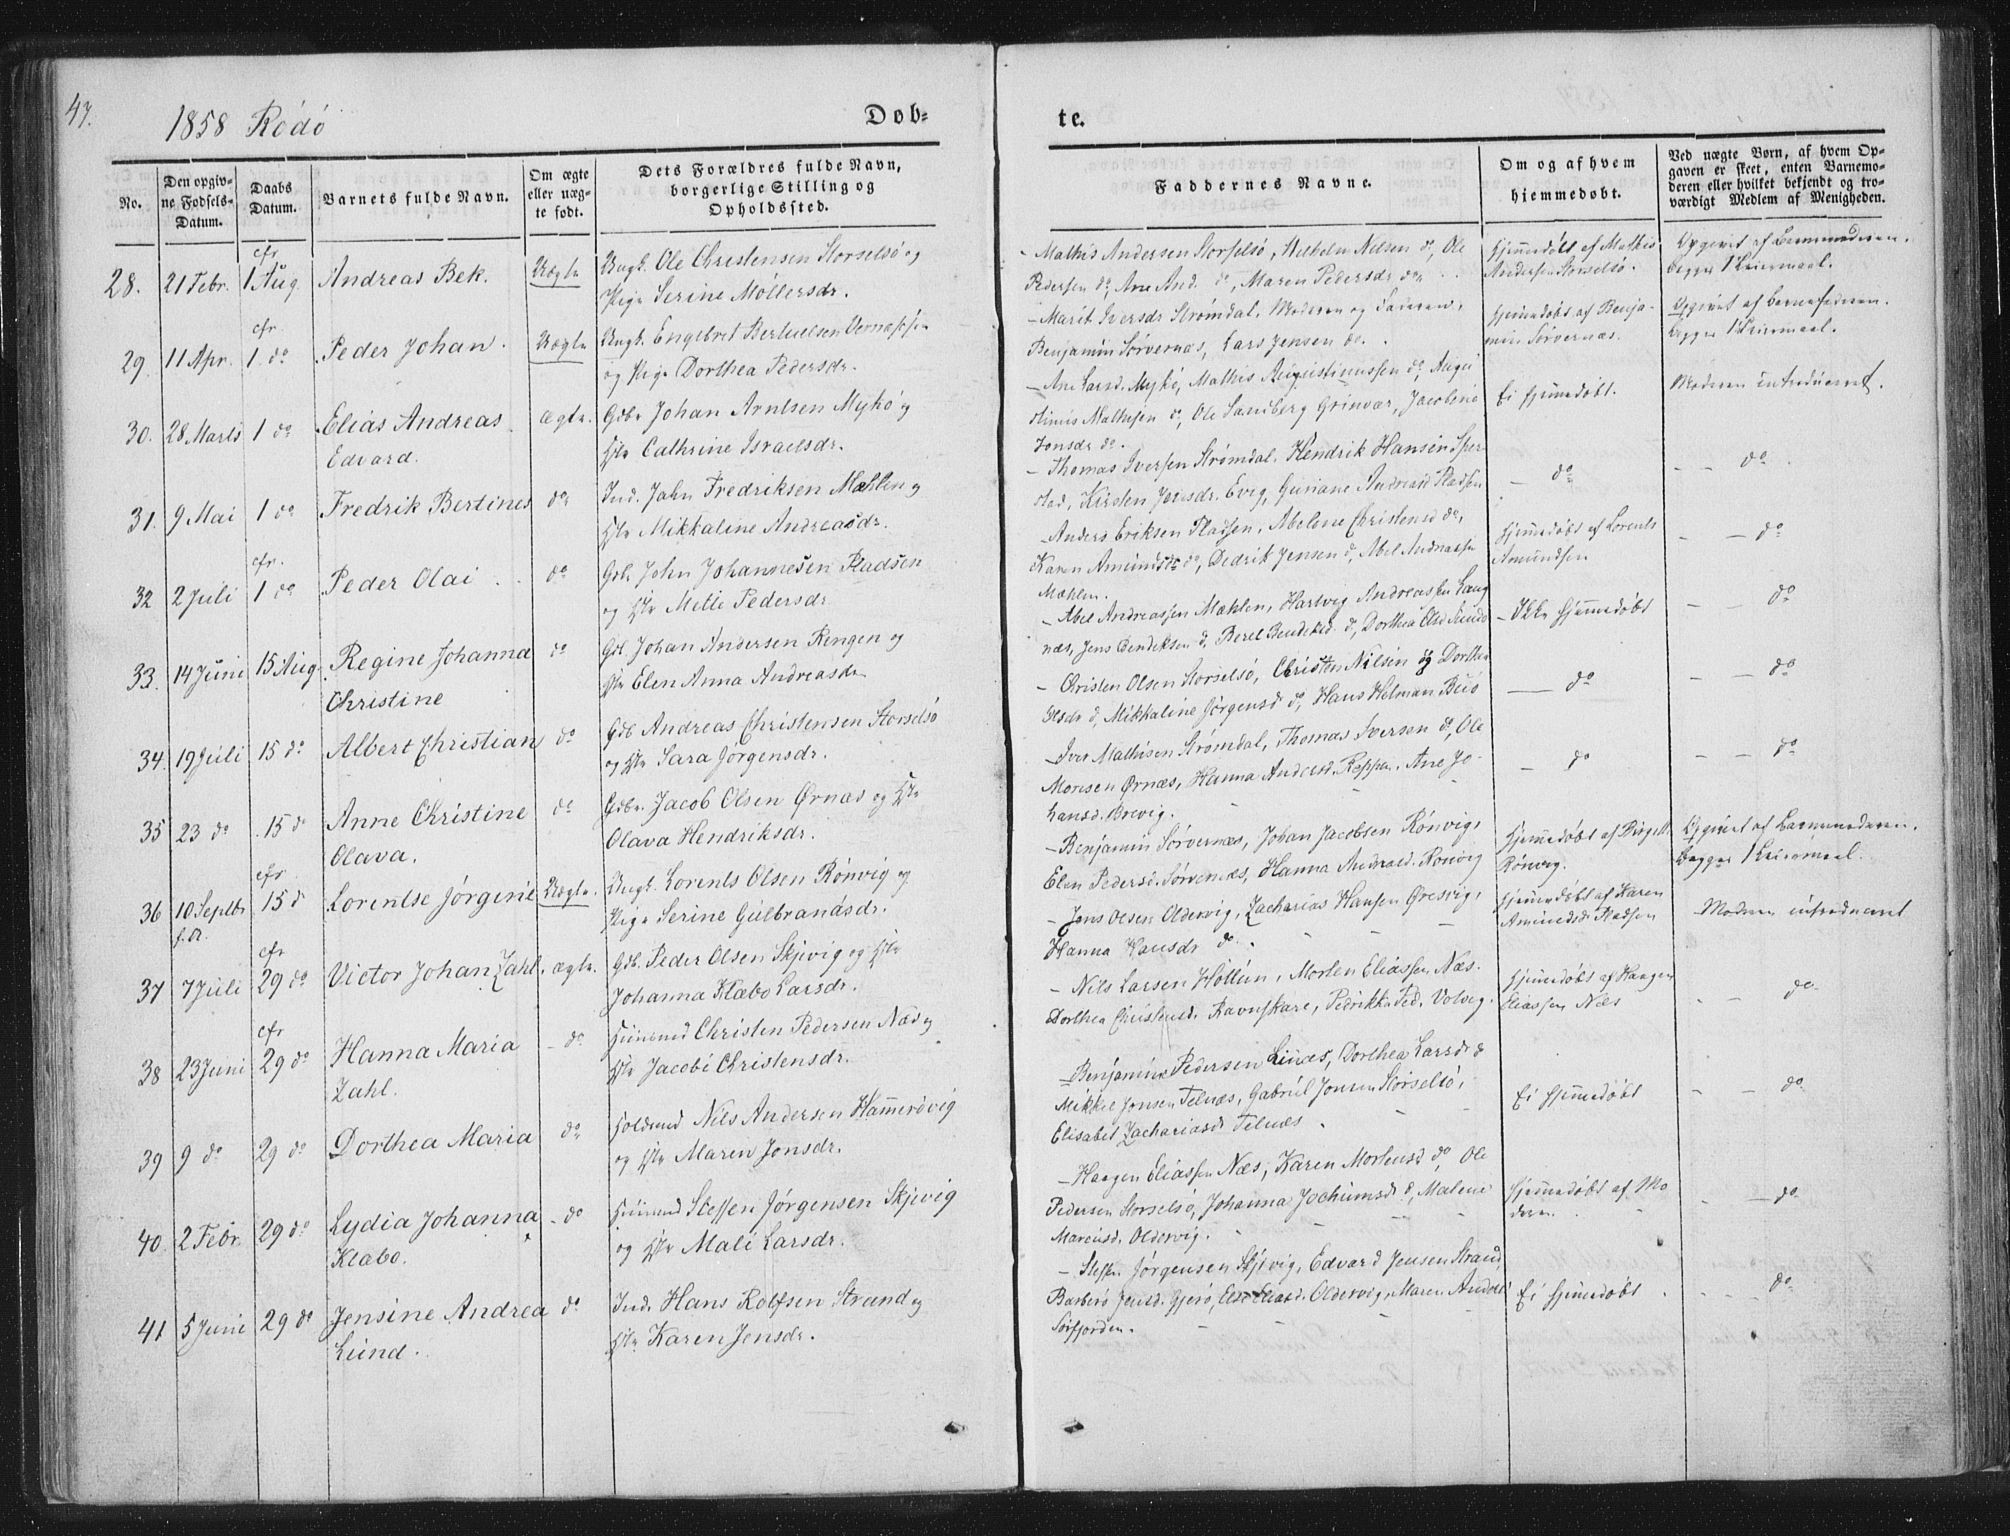 47.
1858 Rödö
Döb-
te.
No.
Den opgiv-
ne Fødsels-
Datum.
Daabs
Datum.
Barnets fulde Navn.
Om ægte
eller uæg-
te født.
Dets Forældres fulde Navn,
borgerlige Stilling og
Opholdssted.
Faddernes Navne.
Om og af hvem
hjemmedøbt.
Ved uægte Børn, af hvem Op-
gaven er skeet, enten Barnemo-
deren eller hvilket bekjendt og tro-
værdigt Medlem af Menigheden.
cfr
28. 21 Febr. 1 Aug Andreas Bek. Uægte Ungk. Ole Christensen Storselsö og
Pige Serine Möllersdr.
Mathis Andersen Storselsö, Wilhelm Nilsen do, Ole
Pedersen do, Ane And. do, Maren Pedersdr do
Hjemmedöbt af Mathis
Andersen Storselsö.
Opgivet af Barnemoderen.
begges 1 Leiermaal.
cfr.
29. 11 Apr. 1 do Peder Johan. Uægte Ungk. Engebret Bertuelsen
og Pige Dorthea Pedersdr.
Marit Iversdr Strømdal, Moderen og Faderen,
Benjamin Sørvernæs, Lars Jensen do.
Hjemmedöbt af Benja-
min Sørvernæs.
Opgivet af
begges 1 Leiermaal.
30. 28 Marts 1 do Elias Andreas ægte. Gdbr Johan Arntsen Mykö og
Edvard. Hstr Cathrine Israelsdr.
Ane Larsd. Mykö, Mathis Augustinussen do, Augu
stinus Mathisen do, Ole Sandberg Grinvær, Jacobine
Jonsdr do.
Ei hjemmedöbt.
Moderen introduceret.
31. 9 Mai 1 do Fredrik Bertines do Ind. John Fredriksen Mæhlen og
Hstr Mikkaline Andreasdr.
Thomas Iversen Strømdal, Hendrik Hansen Sper
stad, Kirsten Jensdr. Evig, Guriane Andreasd Pladsen
do
do
cfr.
32 2 Juli 1 do Peder Olai. do Gdb. John Johannesen Pladsen
og Hstr Mette Pedersdr
Anders Eriksen Pladsen, Abelone Christensd do,
Karen Amundsdr do, Dedrik Jensen do, Abel Andreassen
Mæhlen.
Hjemmedöbt af Lorents
Amundsen
do
33. 14 Juni 15 Aug. Regine Johanna do Gdb. Johan Andersen Rengen og
Christine Hstr Elen Anna Andreasdr
Abel Andreassen Mæhlen, Hartvig Andreassen Laug
næs, Jens Bendiksen do, Beret Bendiksd. do, Dorthea Olsd
Ikke hjemmedöbt
do
34. 19 Juli 15 do Albert Christian do Gdb Andreas Christensen Storselsö
og Hstr Sara Jørgensdr.
Christen Olsen Storselsö, Christen Nilsen og Dorthea
Olsdr do, Mikkaline Jørgensd do, Hans Hilman
do
do
35 23 do 15 do Anne Christine do Gdbr. Jacob Olsen Ørnæs og Hstr
Olava. Olava Hendriksdr.
Iver Mathisen Strømdal, Thomas Iversen do, Ole
Monsen Ørnæs, Hanna Andersd. Reppen, Ane Jo-
hansd. Brevig.
do
do
cfr.
36 10 Septbr 15 do Lorentse Jørgine Uægte. Ungk. Lorents Olsen Rönvig og
f.A. Pige Serine Gulbrandsdr.
Benjamin Sørvernæs, Johan Jacobsen Rönvig,
Elen Pedersd. Sørvernæs, Hanna Andreasd. Rönvig
Hjemmedöbt af Birgitte
Rönvig.
Opgivet af Barnemoderen.
begges 1 Leiermaal.
cfr
37 7 Juli 29 do Victor Johan Zahl. ægte. Gdb. Peder Olsen Skjevig og Hstr
Johanna Klæbo Larsdr.
Jens Olsen Oldervig, Zacharias Hansen Øresvig,
Hanna Hansdr do.
Hjemmedöbt af Karen
Amundsdr Pladsen
Moderen introduceret
cfr
38 23 Juni 29 do Hanna Maria do. Huusmd Christen Pedersen Næs og
Zahl. Hstr Jacobe Christensdr.
Nils Larsen Hollun, Morten Eliassen Næs.
Dorthea Christensd. Ravnskare, Pedrikka Ped. Volvig.
Hjemmedöbt af Haagen
Eliassen Næs
do
39 9 do 29 do Dorthea Maria do Foldemd Nils Andersen Hammervig
og Hstr Maren Jonsdr.
Benjamin Pedersen Linæs, Dorthea Larsdr do
Mikkel Jonsen Telnæs, Gabriel Jonsen Storselsö,
Elisabet Zachariasd. Telnæs.
Ei hjemmedöbt
do
40. 2 Febr. 29 do Lydia Johanna do Huusmd Steffen Jørgensen Skjevig
Klæbo. og Hstr Mali Larsdr.
Haagen Eliassen Næs, Karen Mortensd do, Ole
Pedersen Storselsö, Johanna Jochumsdr do, Malene
Marcusd. Oldervig.
Hjemmedöbt af Mo
deren.
do
41 5 Juni 29 do Jensine Andrea do Ind. Hans Rolfsen Strand og
Lund. Hstr Karen Jensdr.
Steffen Jørgensen Skjevig, Edvard Jensen Strand
Barbero Jensd. Gjerö, Else Eliasd. Oldervig, Maren Andersd
Sørfjorden.
Ei hjemmedöbt
do